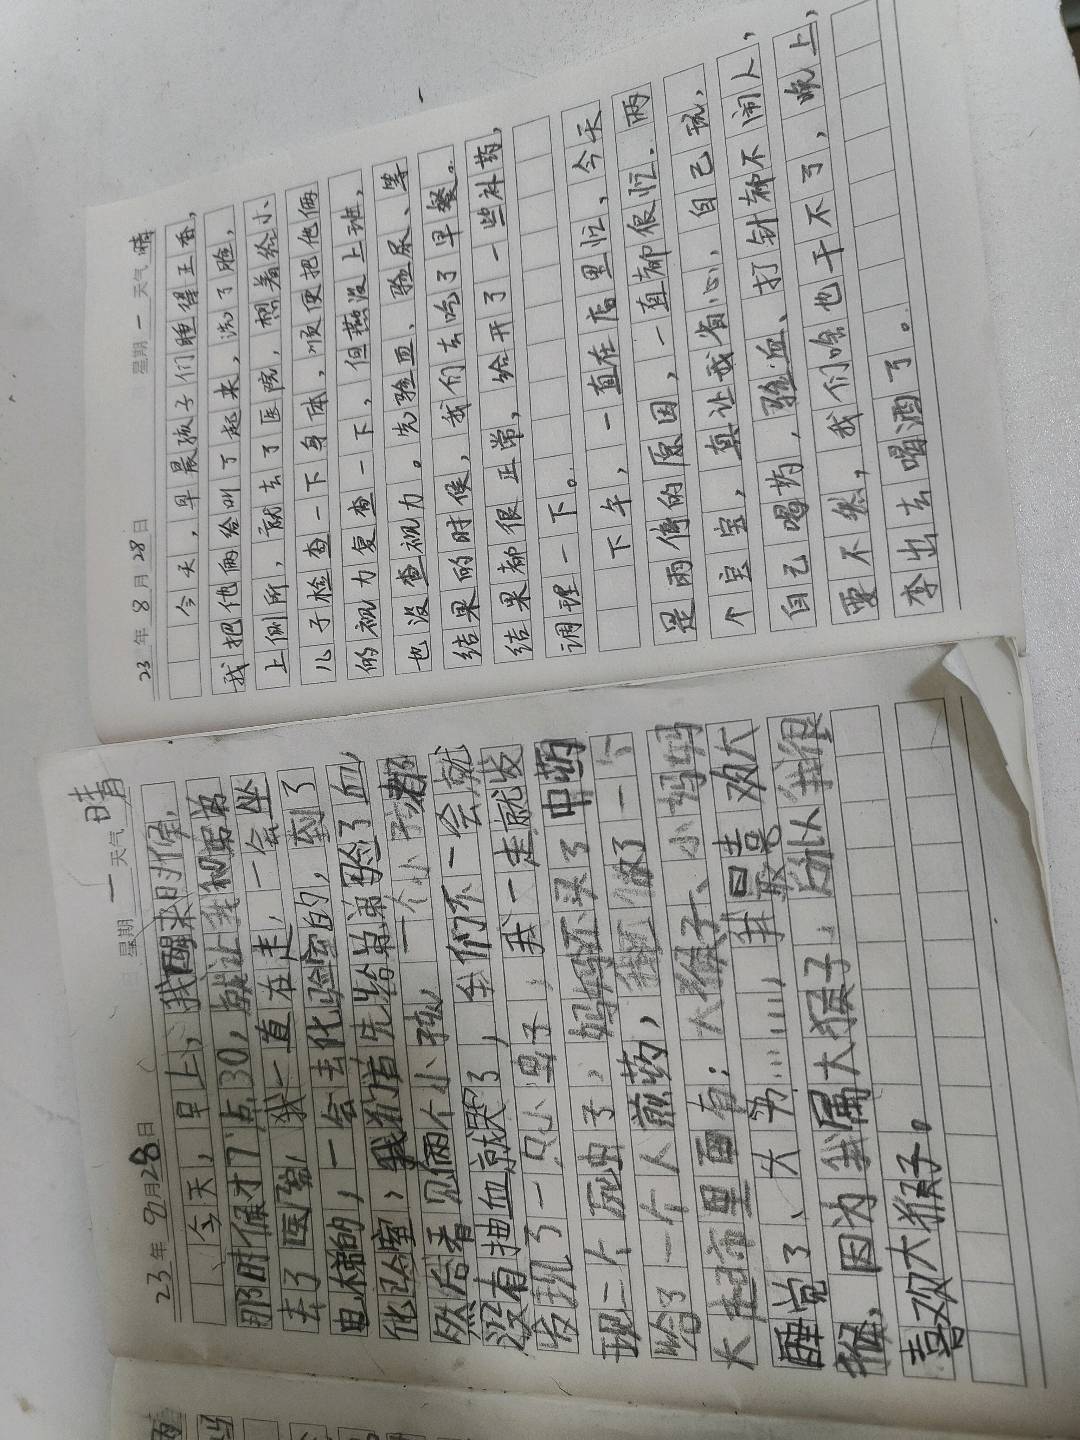 23年8月28日 星期一 天气 晴
今天，早晨孩子们睡得正香，
我把他俩给叫了起来，洗了脸，
上厕所，就去了医院，想着给小
儿子检查一下身体，顺便把他俩
的视力复查一下，但燕没上班，
也没查视力。先验血、验尿、等
结果的时候，我们去吃了早餐。
结果都很正常，给开了一些补药，
调理一下。
下午，一直在店里忙，今天
是雨停的原因，一直都很忙.两
个宝宝，真让我省心，自己玩，
自己喝药，验血、打针都不闹人，
要不然，我们啥也干不了，晚上，
李出去喝酒了。
23年9月28日 星期一 天气 晴
今天，早上，我醒来时候，
那时候才7点30，就让我和弟弟
去了医院，我一直在走，一会坐
电梯的，一会去化验室的，到了
化验室，我们首先给弟弟验了血，
然后看见俩个小孩，一个小孩都
没有抽血就哭了，我们不一会就
发现了一只小虫子，我一走就发
现一个死虫子，妈妈还买了中药
给了一个人煎药，我们做了一个
大 里面有：大猴子、小妈妈
睡觉了、大 ……，我最喜欢大
猴，因为我属大猴子，所以我很
喜欢大猴子。